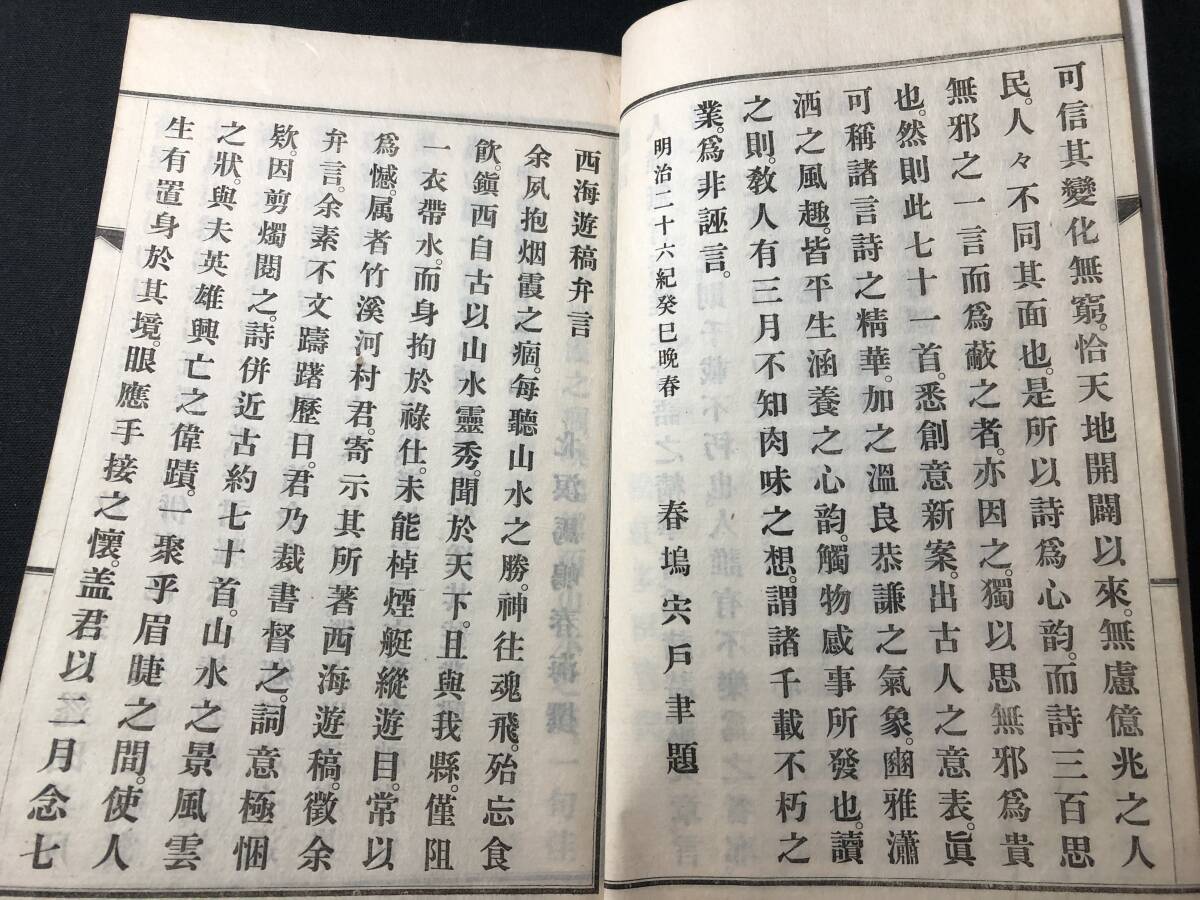 可信其變化無窮。恰天地開闢以來。無慮億兆之人
民。人々不同其面也。是所以詩爲心韵。而詩三百思
無邪之一言而爲蔽之者。亦因之。獨以思無邪爲貴
也。然則此七十一首。悉創意新案。出古人之意表。眞
可稱諸言詩之精華。加之溫良恭謙之氣象。幽雅瀟
洒之風趣。皆平生涵養之心韵。觸物感事所發也。讀
之則。教人有三月不知肉味之想。謂諸千載不朽之
業。爲非誣言。
明治二十六紀癸巳晩春
春塢宍戶聿題
西海遊稿弁言
余夙抱烟霞之痼。每聽山水之勝。神往魂飛。殆忘食
飮。鎭西自古以山水靈秀。聞於天下。且與我縣。僅阻
一衣帶水。而身拘於祿仕。未能棹煙艇縱遊目。常以
爲憾。属者竹溪河村君。寄示其所著西海遊稿。徵余
弁言。余素不文躊躇歷日。君乃裁書督之。詞意極悃
欵。因剪燭閱之。詩併近古約七十首。山水之景風雲
之狀。與夫英雄興亡之偉蹟。一聚乎眉睫之間。使人
生有置身於其境。眼應手接之懷。盖君以二月念七